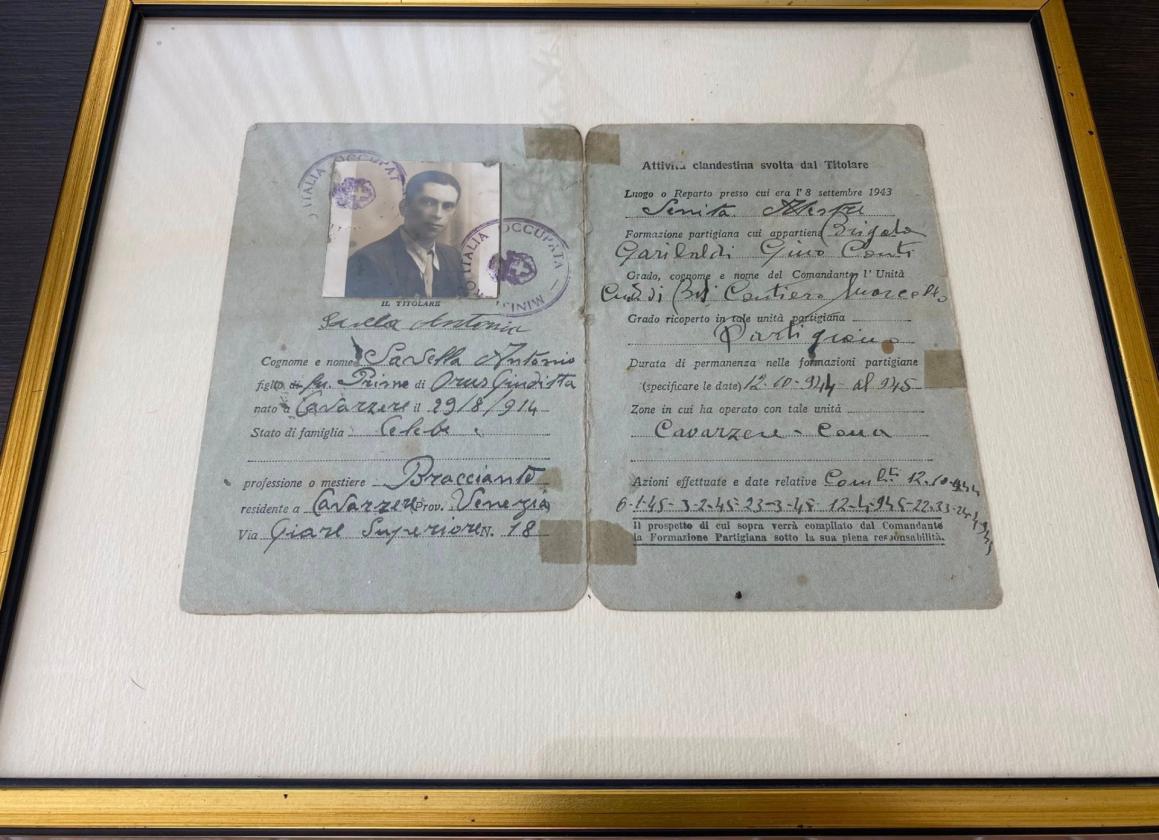 ITALIA OCCUPAT
ITALIA OCCUPATA
MINIS
IL TITOLARE
Antonio
Cognome e nome Sasella Antonio
figlio di fu. Primo di Orus Giuditta
nato a Cavarzere il 29/8/914
Stato di famiglia Celebe
professione o mestiere Bracciante
residente a Cavarzere Prov. Venezia
Via Giare Superiore N. 18
Attività clandestina svolta dal Titolare
Luogo o Reparto presso cui era l' 8 settembre 1943
Formazione partigiana cui appartiene Brigata
Garibaldi Gino Conti
Grado, cognome e nome del Comandante l' Unità
Contiero
Grado ricoperto in tale unità partigiana
Partigiano
Durata di permanenza nelle formazioni partigiane
(specificare le date) 12-10-944 al 945
Zone in cui ha operato con tale unità
Cavarzere - Cona
Azioni effettuate e date relative 12-10-944
6-1-45- 3-2-45- 23-3-45- 12-4-945-
Il prospetto di cui sopra verrà compilato dal Comandante
la Formazione Partigiana sotto la sua piena responsabilità.